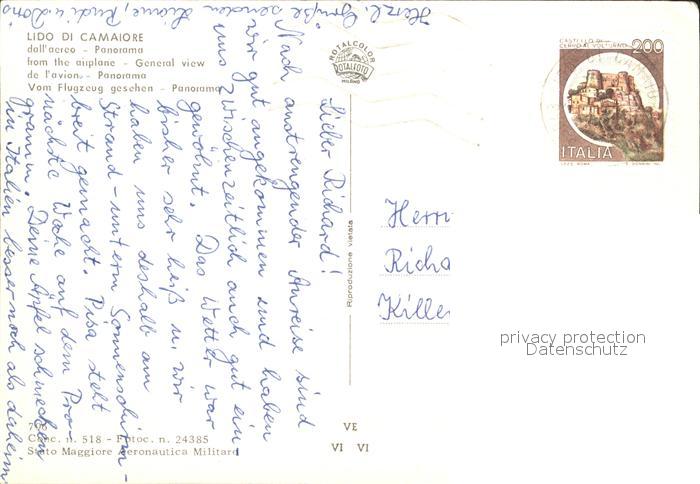 LIDO DI CAMAIORE
dall'aereo - Panorama
from the airplane - General view
de l'avion - Panorama
Vom Flugzeug gesehen - Panorama
ROTALCOLOR
ROTALFOTO
MILANO
CASTELLO DI
CERRO AL VOLTURNO 200
ITALIA
Lieber Richard!
Nach anstrengender Anreise sind
wir gut angekommen und haben
uns zwischenzeitlich auch gut ein-
gewöhnt. Das Wetter war
bisher sehr heiß u. wir
haben uns deshalb am
Strand - unterm Sonnenschirm -
breit gemacht. Pisa steht
nächste Woche auf dem Pro-
gramm. Deine Äpfel schmecken
in Italien besser noch als daheim.
Herzl. Grüße senden
Rudi u. Doris
Herrn
Richa
Killer
Riproduzione vietata
privacy protection
Datenschutz
Conc. n. 518 - Fotoc. n. 24385
Stato Maggiore Aeronautica Militare
VE
VI VI